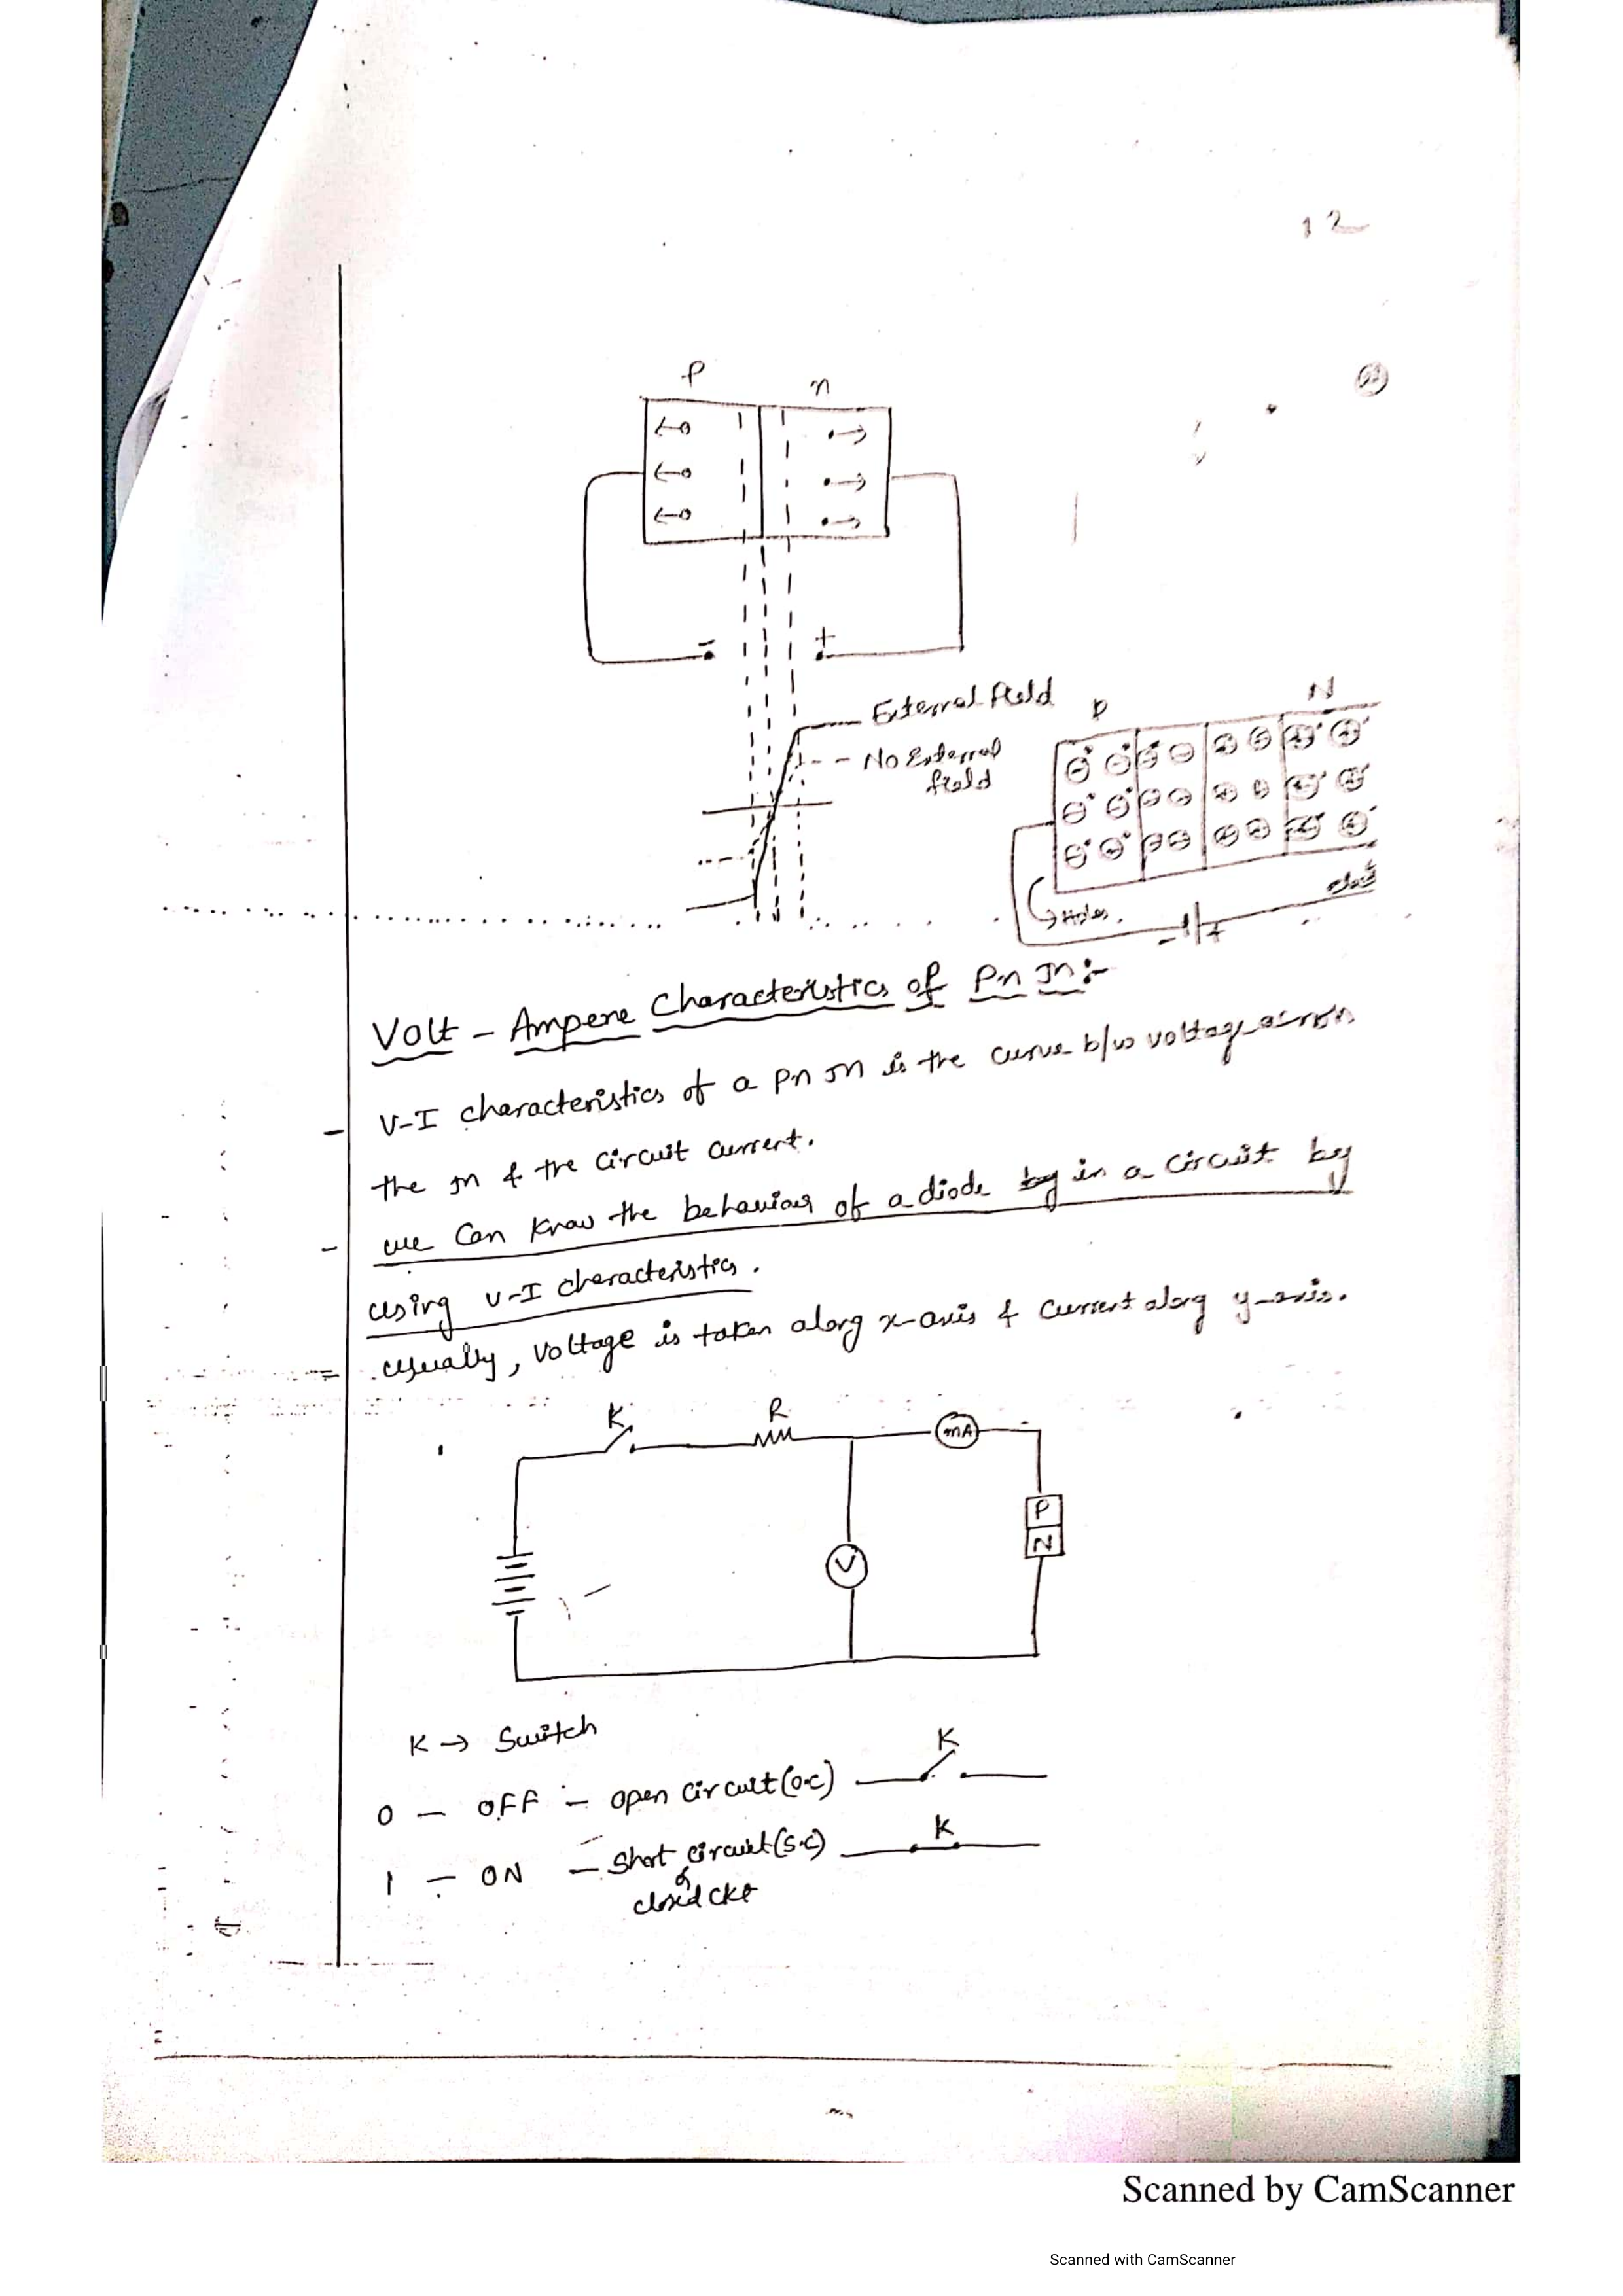 12
P n
- +
External field
No External
field
P N
Holes.
- +
Volt - Ampere Characteristics of Pn Jn :-
- V-I characteristics of a pn Jn is the curve b/w voltage across
the Jn & the circuit current.
- we can know the behaviour of a diode by in a circuit by
using V-I characteristics.
= usually, voltage is taken along x-axis & current along y-axis.
K R mA
V
P
N
K → Switch
0 - OFF - open circuit (o.c) K
1 - ON - Short circuit (s.c) K
or
closed ckt
Scanned by CamScanner
Scanned with CamScanner